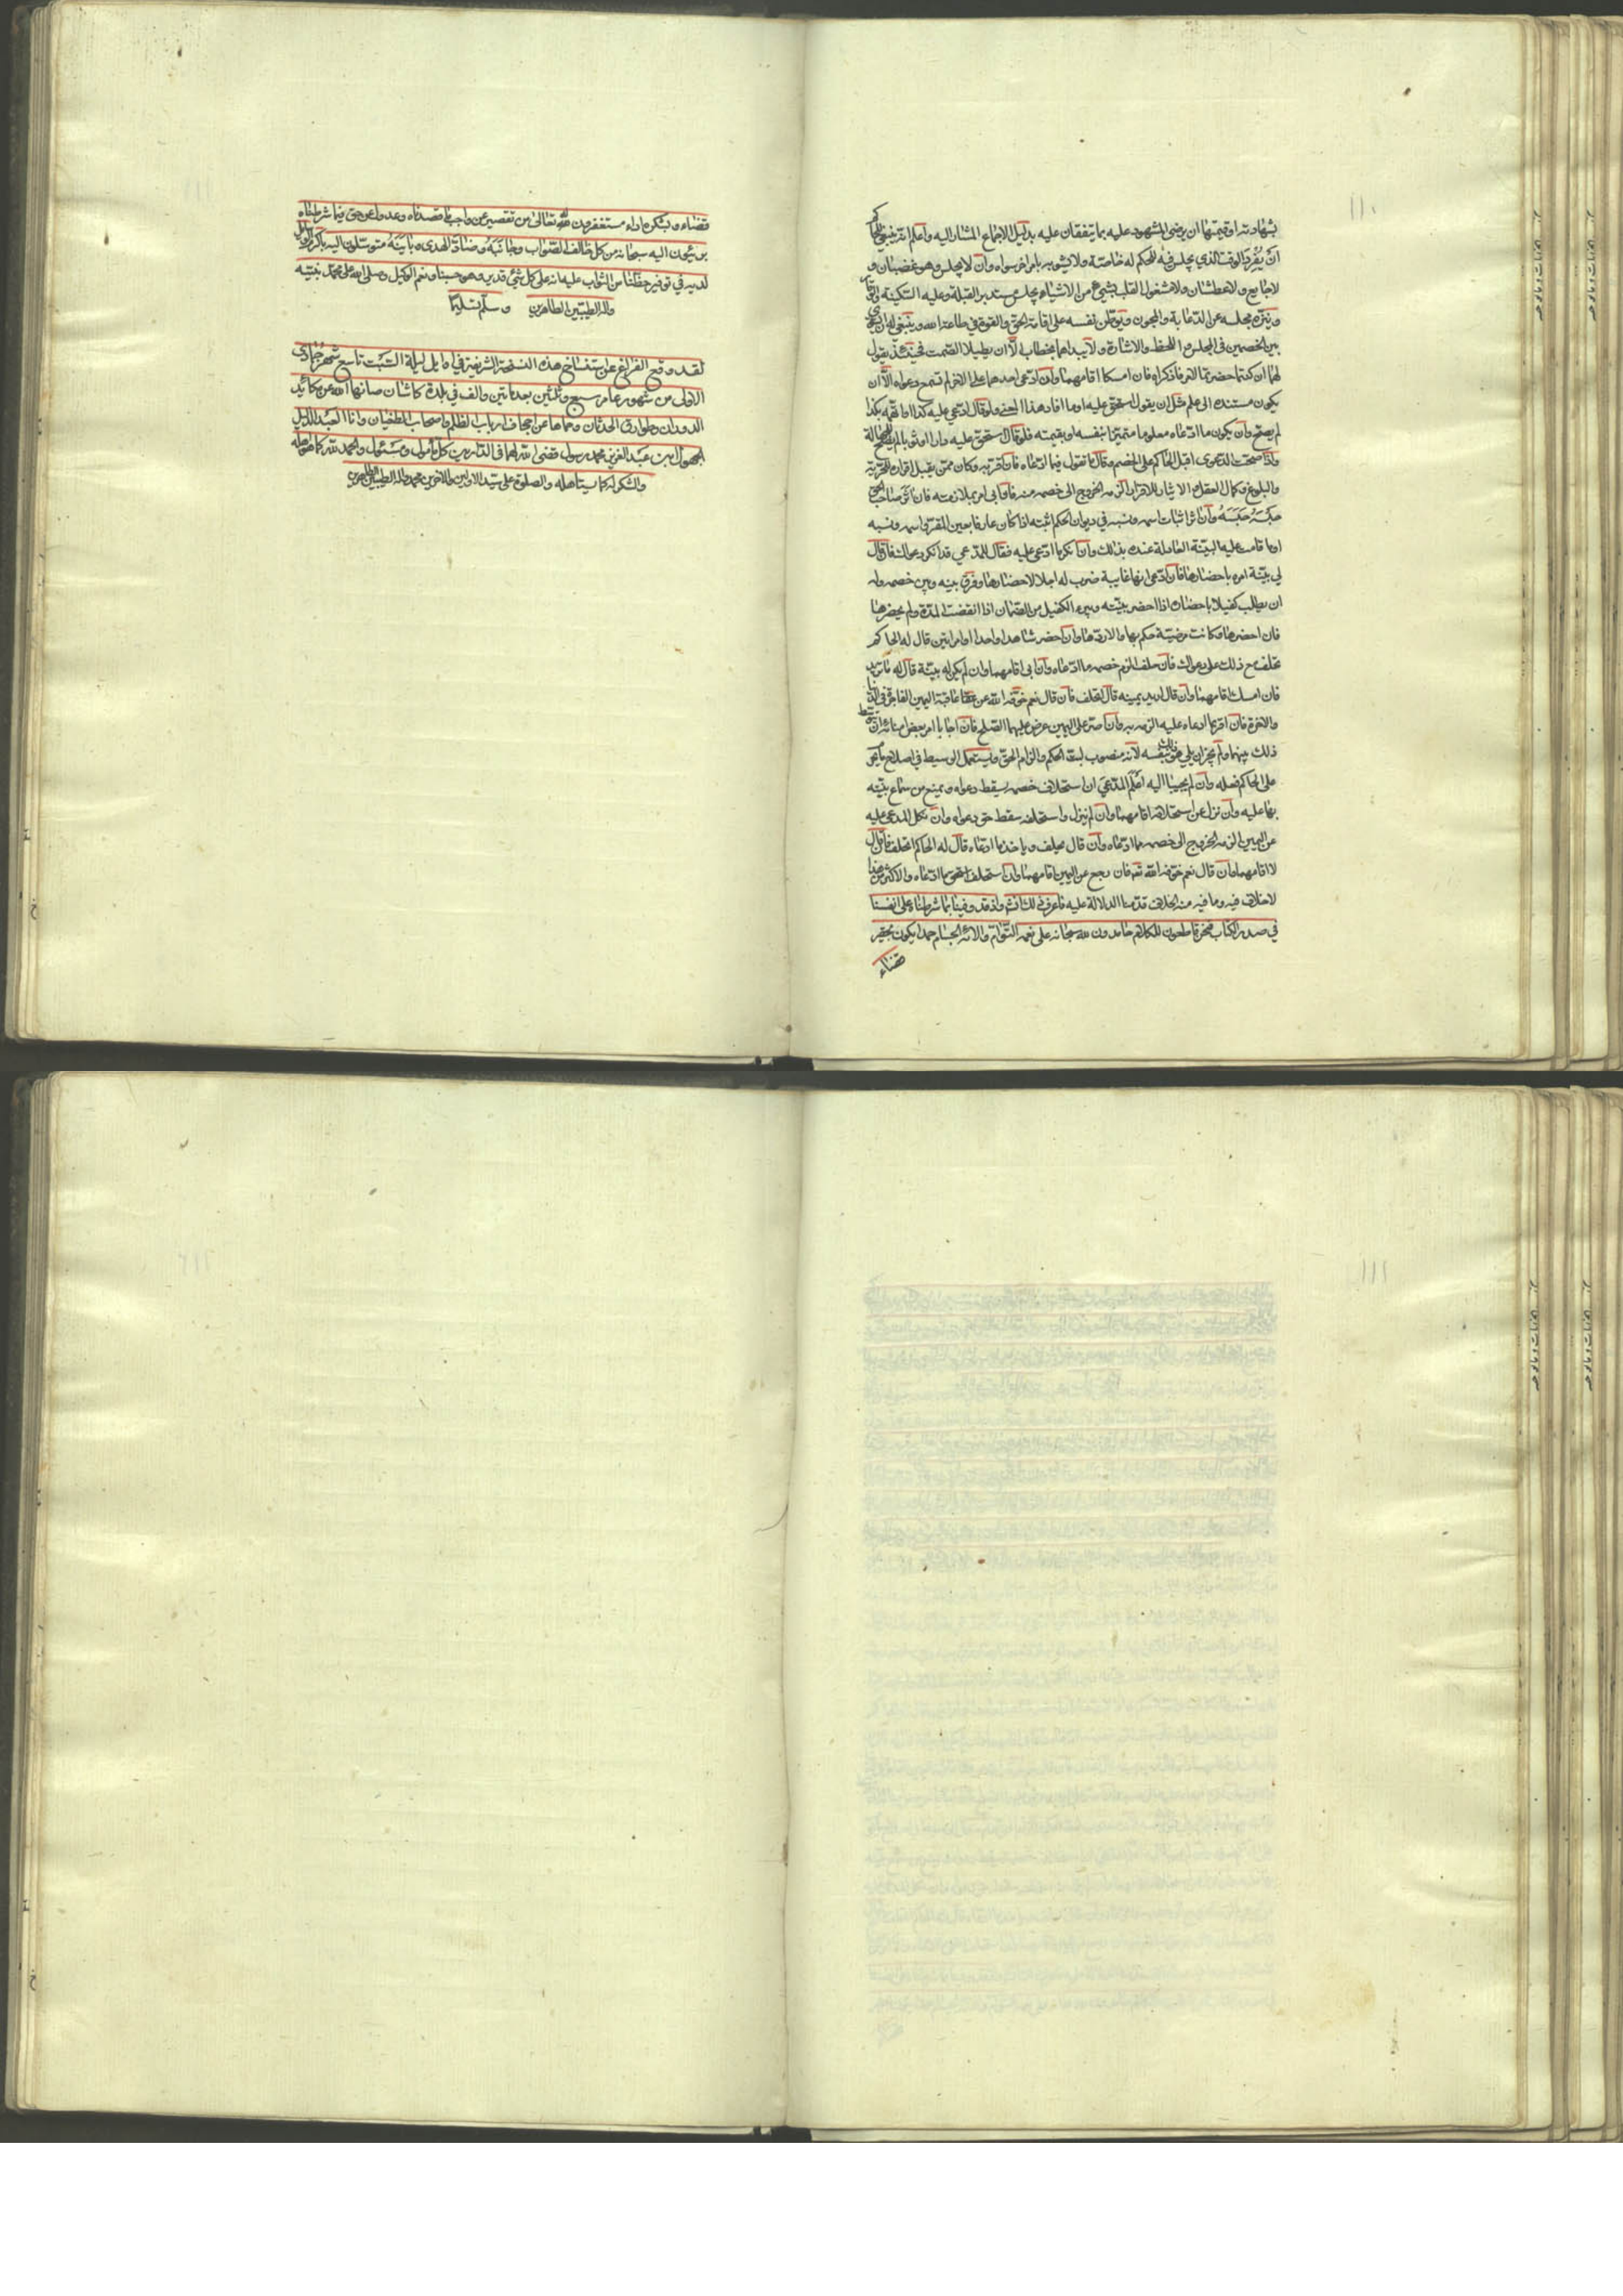 ١١٠
بشهادته او قيمتها ان رضي المشهود عليه بما يتفقان عليه بدليل الاجماع المشار اليه واعلم انه ينبغي للحاكم
ان يُفرد الوقت الذي يجلس فيه للحكم له خاصّة ولا يشوبه بامر اخر سواه وان لا يجلس وهو غضبان و
لا جايع ولا عطشان ولا مشغول القلب بشيء من الاشياء يجلس مستدبر القبلة وعليه السكينة والوقار
وينزّه مجلسه عن الدّعابة والمجون ويوطّن نفسه على اقامة الحق والقوة في طاعة الله وينبغي له ان يسوّي
بين الخصمين في المجلس و اللحظ والاشارة ولا يبداهما بخطاب الّا ان يطيلا الصّمت فحينئذ يقول
لهما ان كنتما حضرتما لامر فاذكراه فان امسكا اقامهما وان ادّعى احدهما على الاخر لم تسمع دعواه الّا ان
يكون مستنده الى علم مثل ان يقول استحق عليه او ما افاد هذا المعنى ولو قال ادّعي عليه كذا او اتّهمه بكذا
لم يصحّ وان يكون ما ادّعاه معلوما متميّزا بنفسه او بقيمته فلو قال استحق عليه دارا او ثوبا لم يصحّ للجهالة
واذا صحّت الدعوى اقبل الحاكم على الخصم وقال ما تقول فيما ادّعاه فان اقرّ به وكان ممّن يقبل اقراره للحرّية
والبلوغ وكمال العقل و الايثار للاقرار الزمه الخروج الى خصمه منه فان ابى امر بملازمته فان اثر صاحب الحق
حبسَهُ حَبَسَهُ وان اثر اثبات اسمه ونسبه في ديوان الحكم اثبته اذا كان عارفا بعين المقرّ و اسمه ونسبه
او ما قامت عليه البيّنة العادلة عنده بذلك وان انكر ما ادّعي عليه فقال للمدّعي قد انكر دعواك فان قال
لي بيّنة امره باحضارها فان ادّعى انها غايبة ضرب له اجلا لاحضارها وفرق بينه وبين خصمه وله
ان يطلب كفيلا باحضاره اذا احضر بيّنته ويبرء الكفيل من الضمان اذا انقضت المدة ولم يحضرها
فان احضرها وكانت مرضيّة حكم بها والا ردّها وان احضر شاهدا واحدا او امراتين قال له الحاكم
تحلف مع ذلك على دعواك فان حلف الزم خصمه ما ادّعاه وان ابى اقامهما وان لم يكن له بيّنة قال له ما تريد
فان امسك اقامهما وان قال اريد يمينه قال اتحلف فان قال نعم خوّفه الله من عاقبة اليمين الفاجرة في الدنيا
والاخرة فان اقر بما ادعاه عليه الزمه به وان اصرّ على اليمين عرض عليهما الصّلح فان اجابا امر بعض امنائه ان يتوسط
ذلك بينهما ولم يجز ان يلي هو ذلك بنفسه لانه منصوب لبتّ الحكم والزام الحق ويستعمل الوسيط في اصلاح ما يحرم
على الحاكم فعله وان لم يجيبا اليه اعلم المدّعي ان استحلاف خصمه يسقط دعواه ويمنع من سماع بيّنته
بها عليه وان نزل عن استحلافه اقامهما وان لم ينزل واستحلفه سقط حق دعواه وان نكل المدعى عليه
عن اليمين الزمه الخروج الى خصمه مما ادّعاه وان قال يحلف وياخذ ما ادّعاه قال له الحاكم اتحلف فان قال
لا اقامهما وان قال نعم خوّفه الله تعه فان رجع عن اليمين اقامهما وان استحلف استحق ما ادّعاه والاكثر من هذا
لا خلاف فيه وما فيه منه الخلاف قدّمنا الدلالة عليه فاعرف ذلك واذ قد وفينا بما شرطناه على انفسنا
في صدر الكتاب فنحن قاطعون للكلام حامدون لله سبحانه على نعمه التّوامّ والائه الجسام حمدا يكون لحقه
قضاء
قضاء ولشكره اداء مستغفرون لله تعالى من تقصير عن واجب ما قصدناه وعدول عن حق فيما شرطناه
بريئون اليه سبحانه من كل ما خالف الصّواب وجانَبَهُ وضادّ الهدى وبايَنَهُ متوسّلون اليه باكرم الوسائل
لديه في توفير حظّنا من الثواب عليه انه على كل شيء قدير وهو حسبنا ونعم الوكيل وصلى الله على محمّد نبيّه
واله الطيبين الطاهرين وسلّم تسليما
لقد وقع الفراغ عن استنساخ هذه النسخة الشريفة في اوايل ليلة السّبت تاسع شهر جمادى
الاولى من شهور عام سبع وثلثين بعد مأتين والف في بلدة كاشان صانها الله عن مكائد
الدوران وطوارق الحدثان وحماها عن اجحاف ارباب الظلم واصحاب الطغيان وانا العبد الذليل
الجهول ابن عبد العزيز محمد رسول قضى الله لهما في الدارين كل مأمول ومسئول والحمد لله كما هو اهله
والشكر له كما يستأهله والصلوة على سيّد الاولين والاخرين محمد واله الطيبين الطاهرين
١١١